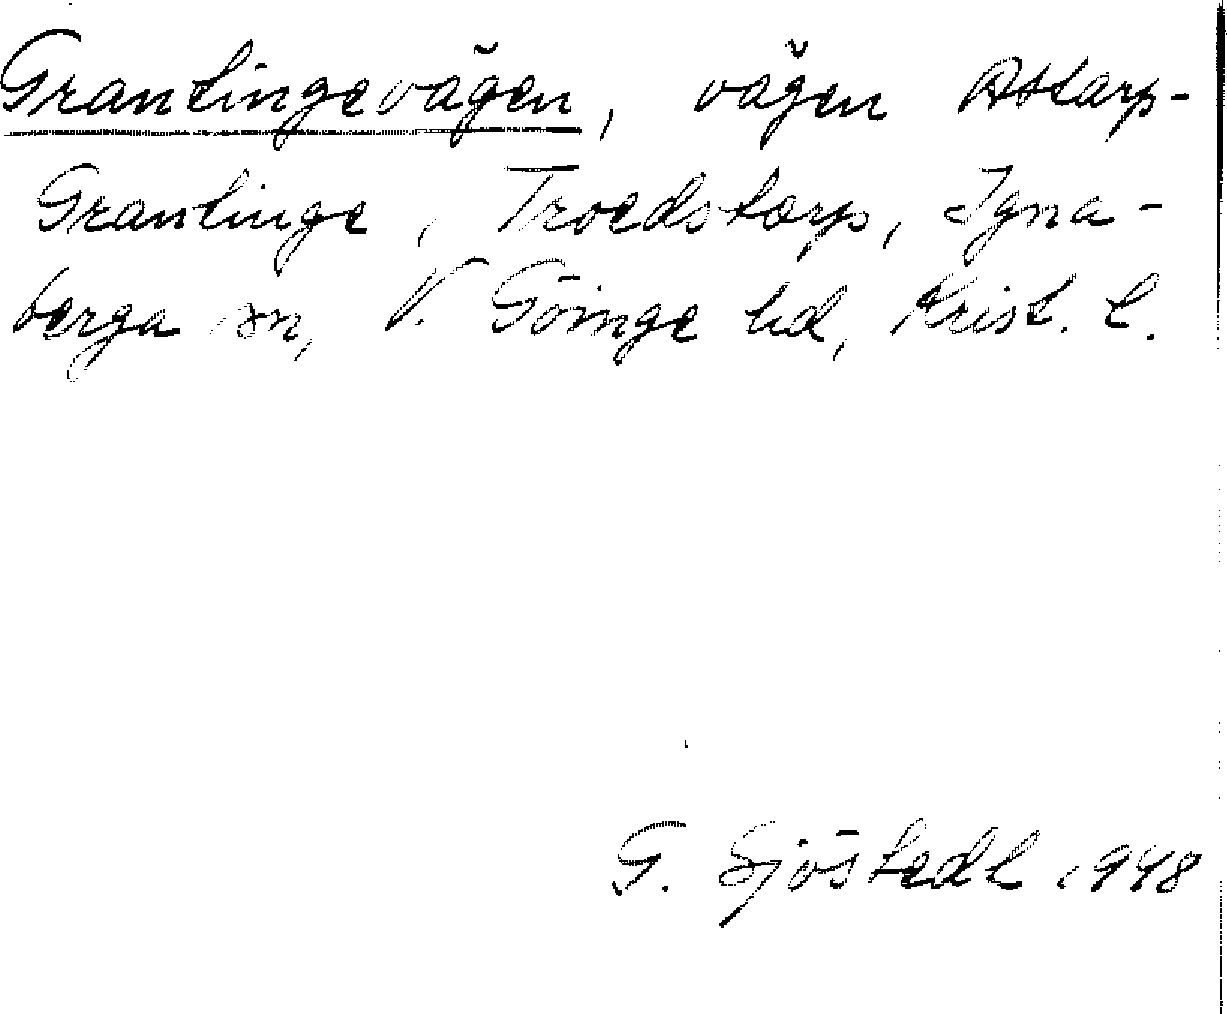 Grantingevägen, vägen Attarp-
Grantinge, Troedstorp, Igna-
berga sn, V. Göinge hd, Krist. l.
G. Sjöstedt 1948